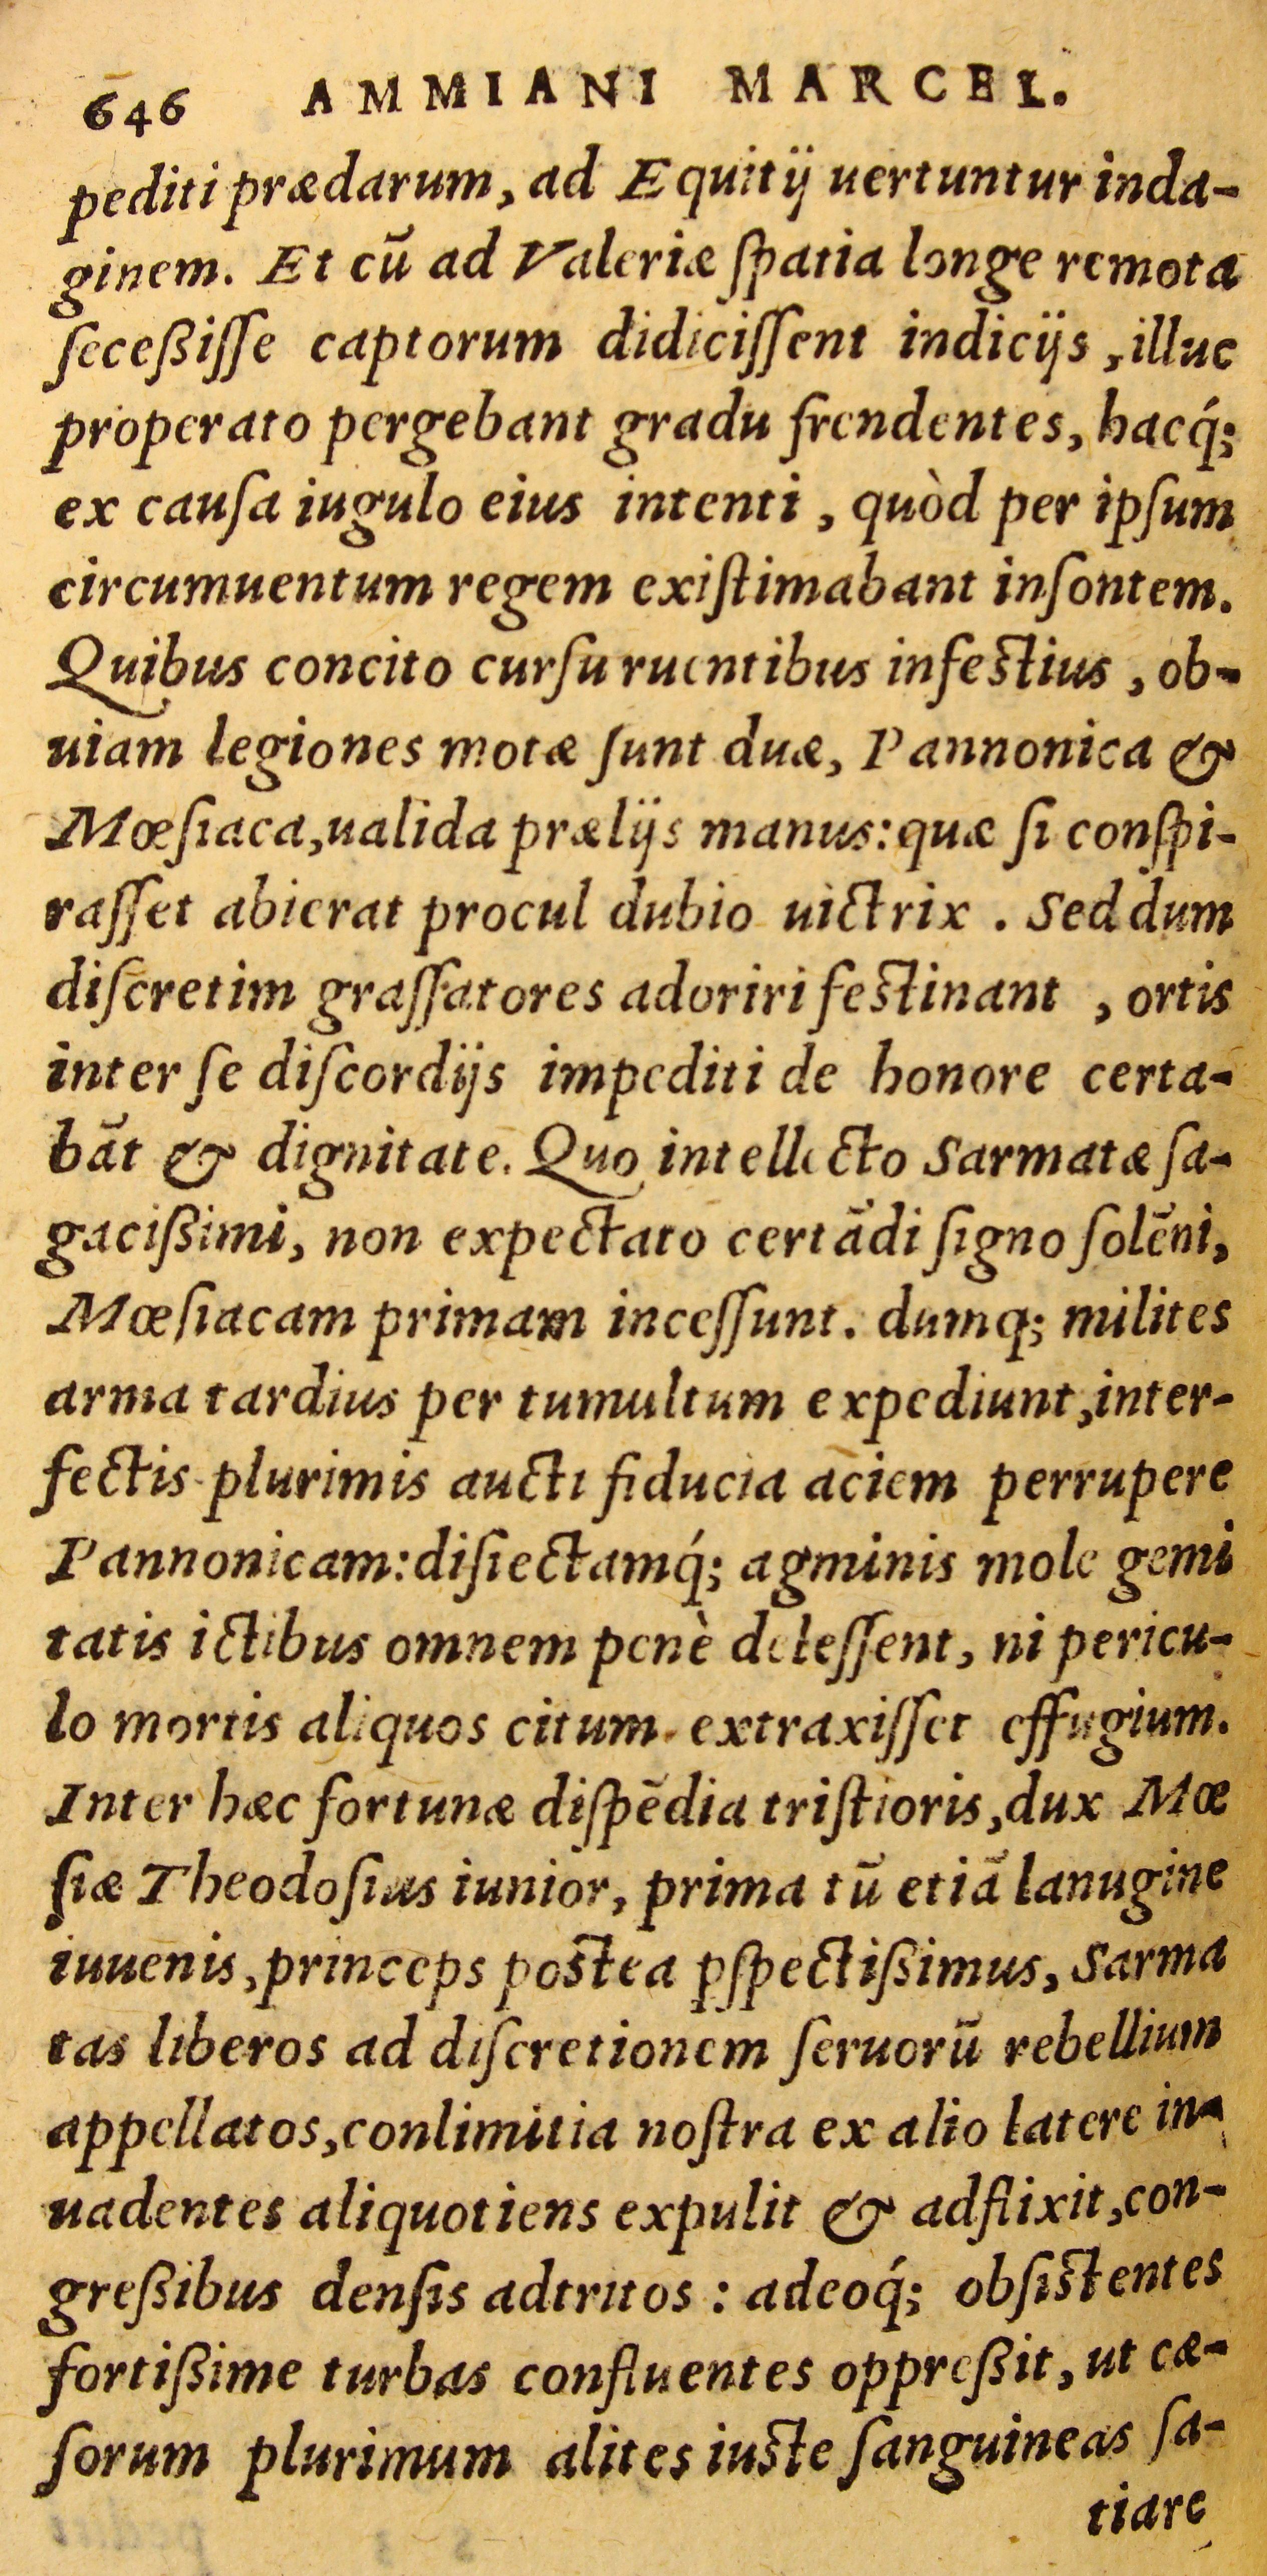 646 AMMIANI MARCEL.
pediti prædarum, ad Equitij uertuntur inda-
ginem. Et cū ad Valeriæ ſpatia longe remota
ſeceßiſſe captorum didiciſſent indicijs, illuc
properato pergebant gradu frendentes, hacq́;
ex cauſa iugulo eius intenti, quòd per ipſum
circumuentum regem exiſtimabant inſontem.
Quibus concito curſu ruentibus infeſtius, ob-
uiam legiones motæ ſunt duæ, Pannonica &
Mœſiaca, ualida prælijs manus: quæ ſi conſpi-
raſſet abierat procul dubio uictrix. Sed dum
diſcretim graſſatores adoriri feſtinant, ortis
inter ſe diſcordijs impediti de honore certa-
bāt & dignitate. Quo intellecto Sarmatæ ſa-
gacißimi, non expectato certādi ſigno ſolēni,
Mœſiacam primam inceſſunt. dumq; milites
arma tardius per tumultum expediunt, inter-
fectis plurimis aucti fiducia aciem perrupere
Pannonicam: diſiectamq́; agminis mole gemi
tatis ictibus omnem penè deleſſent, ni pericu-
lo mortis aliquos citum extraxiſſet effugium.
Inter hæc fortunæ diſpēdia triſtioris, dux Mœ
ſiæ Theodoſius iunior, prima tū etiā lanugine
iuuenis, princeps poſtea pſpectißimus, Sarma
tas liberos ad diſcretionem ſeruorū rebellium
appellatos, conlimitia noſtra ex alio latere in-
uadentes aliquotiens expulit & adflixit, con-
greßibus denſis adtritos: adeoq́; obſiſtentes
fortißime turbas confluentes oppreßit, ut cæ-
ſorum plurimum alites iuſte ſanguineas ſa-
tiare